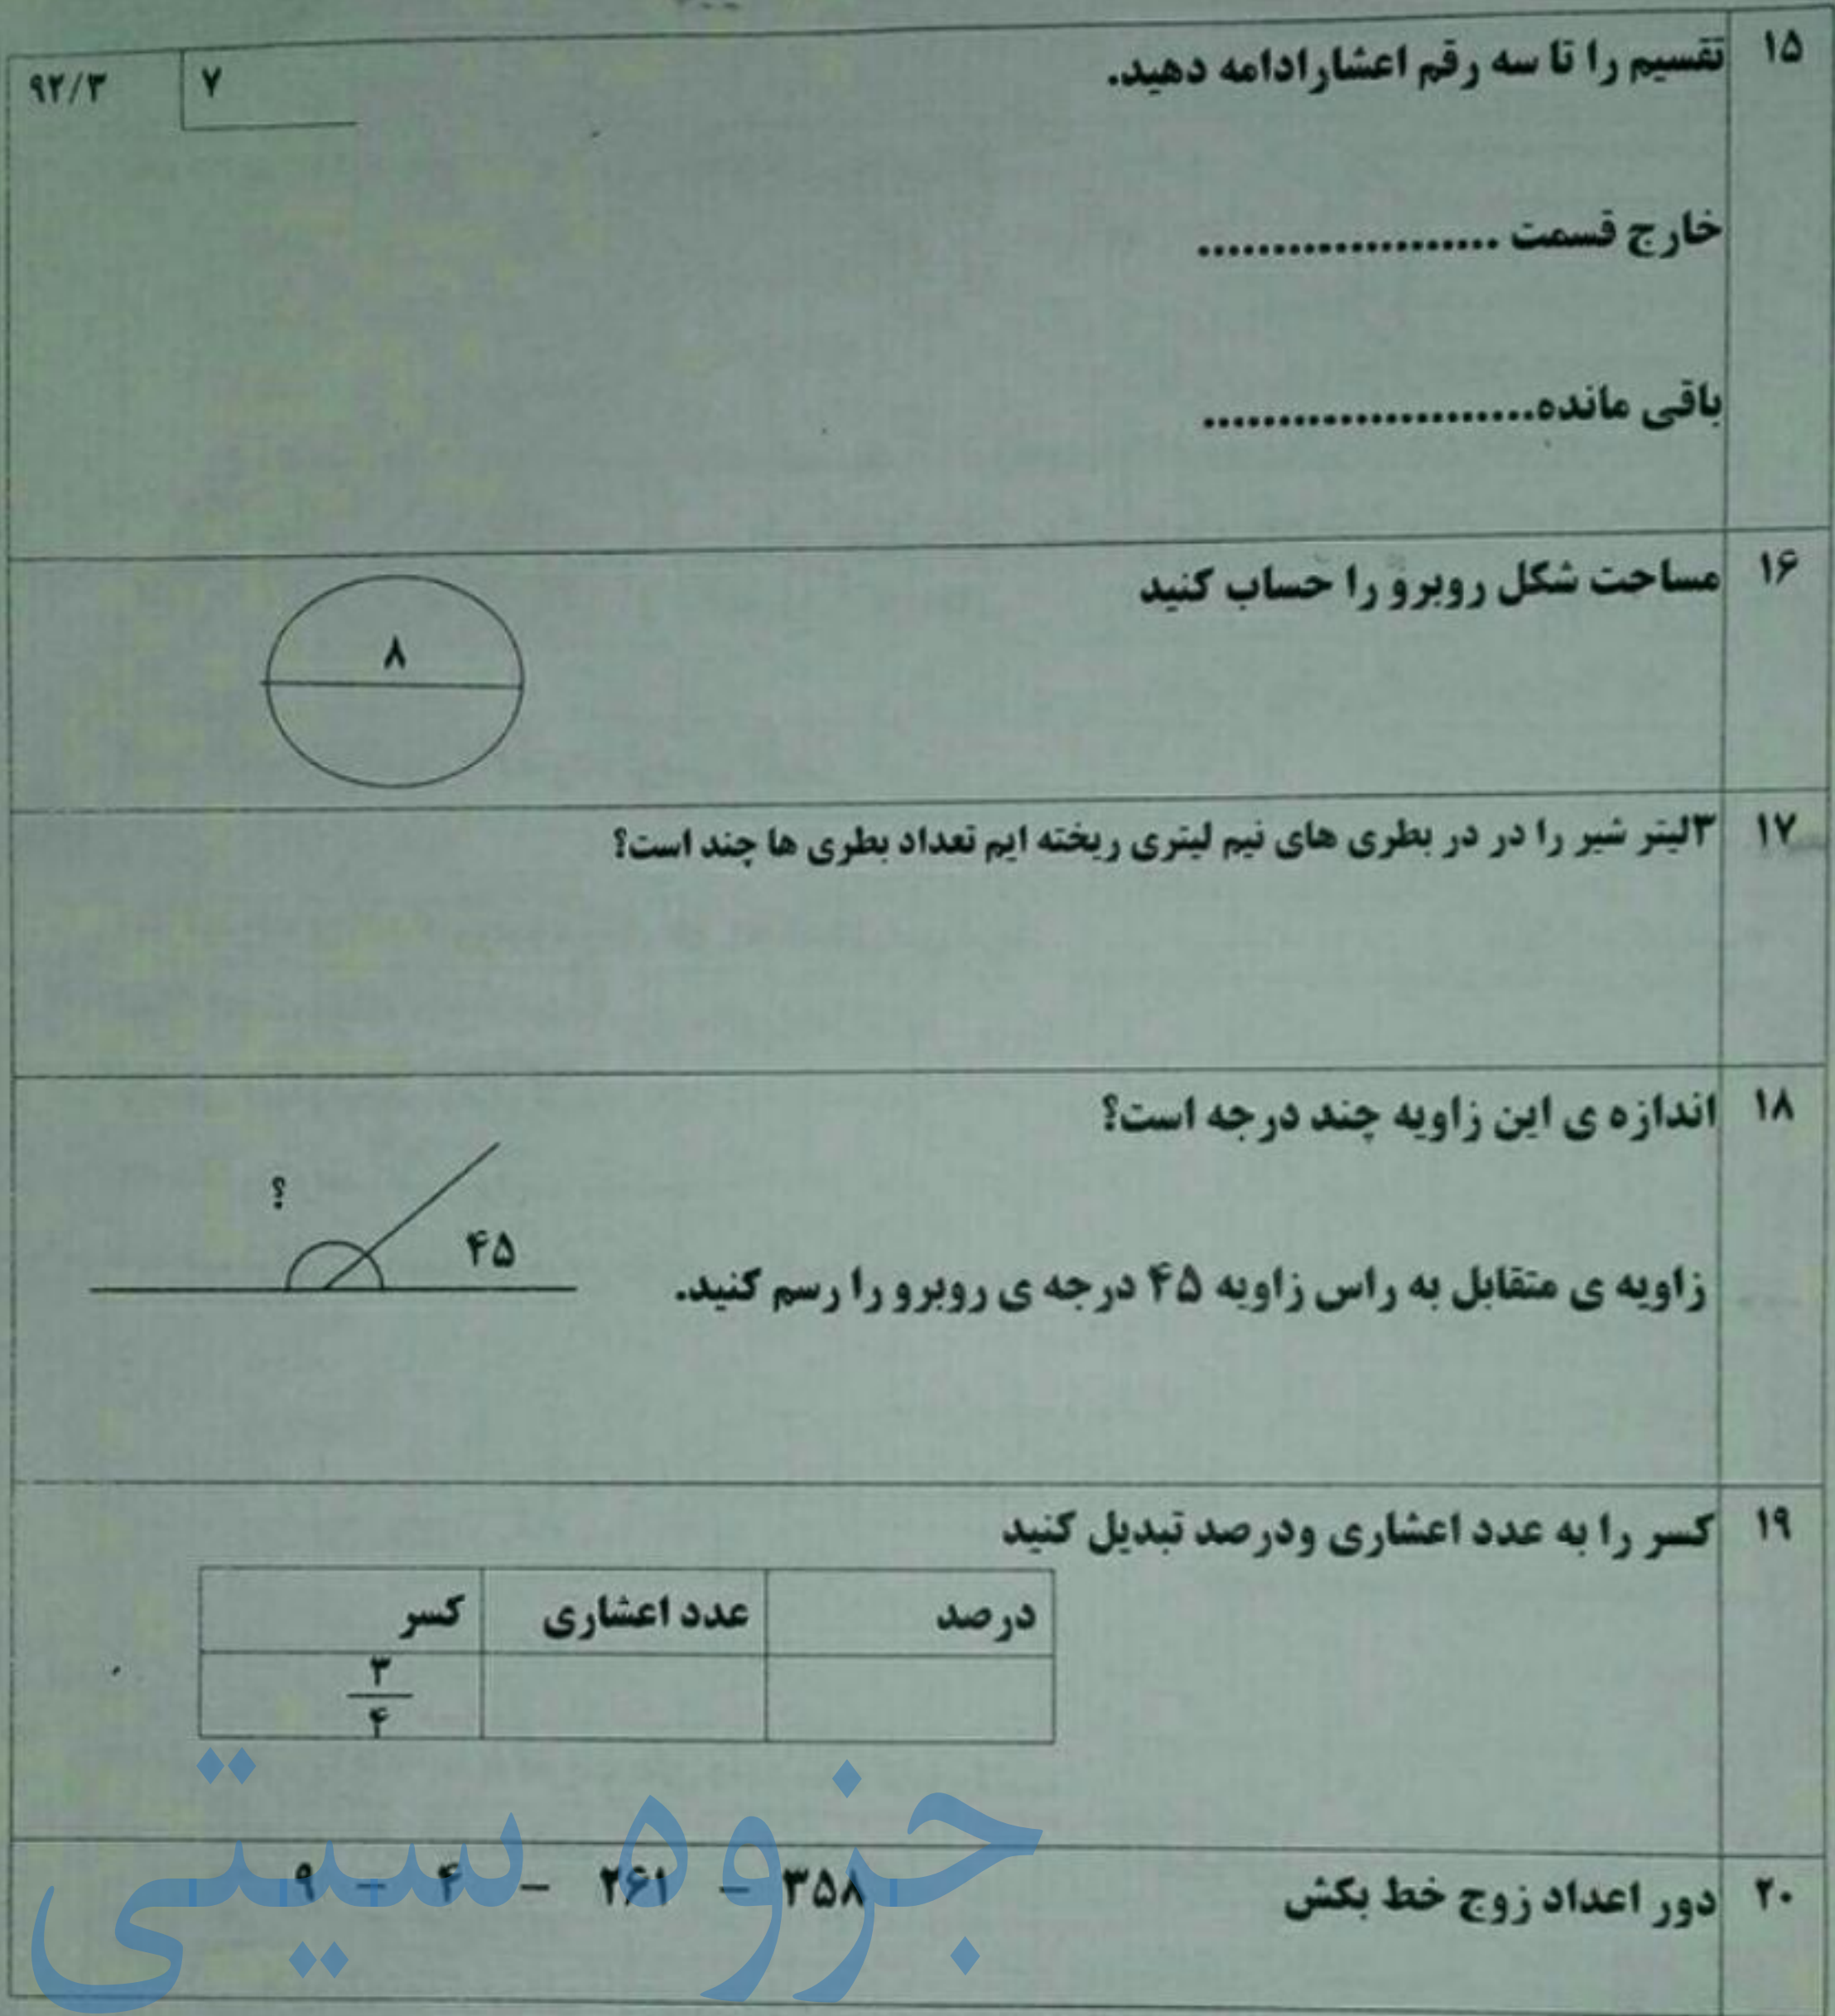 ۱۵ تقسیم را تا سه رقم اعشار ادامه دهید.
۹۲/۳ ۷
خارج قسمت ....................
باقی مانده......................
۱۶ مساحت شکل روبرو را حساب کنید
۸
۱۷ ۳لیتر شیر را در در بطری های نیم لیتری ریخته ایم تعداد بطری ها چند است؟
۱۸ اندازه ی این زاویه چند درجه است؟
؟
۴۵
زاویه ی متقابل به راس زاویه ۴۵ درجه ی روبرو را رسم کنید.
۱۹ کسر را به عدد اعشاری ودرصد تبدیل کنید
درصد عدد اعشاری کسر
۳
۴
۲۰ دور اعداد زوج خط بکش ۳۵۸ – ۲۶۱ – ۴ – ۹
جزوه سیتی